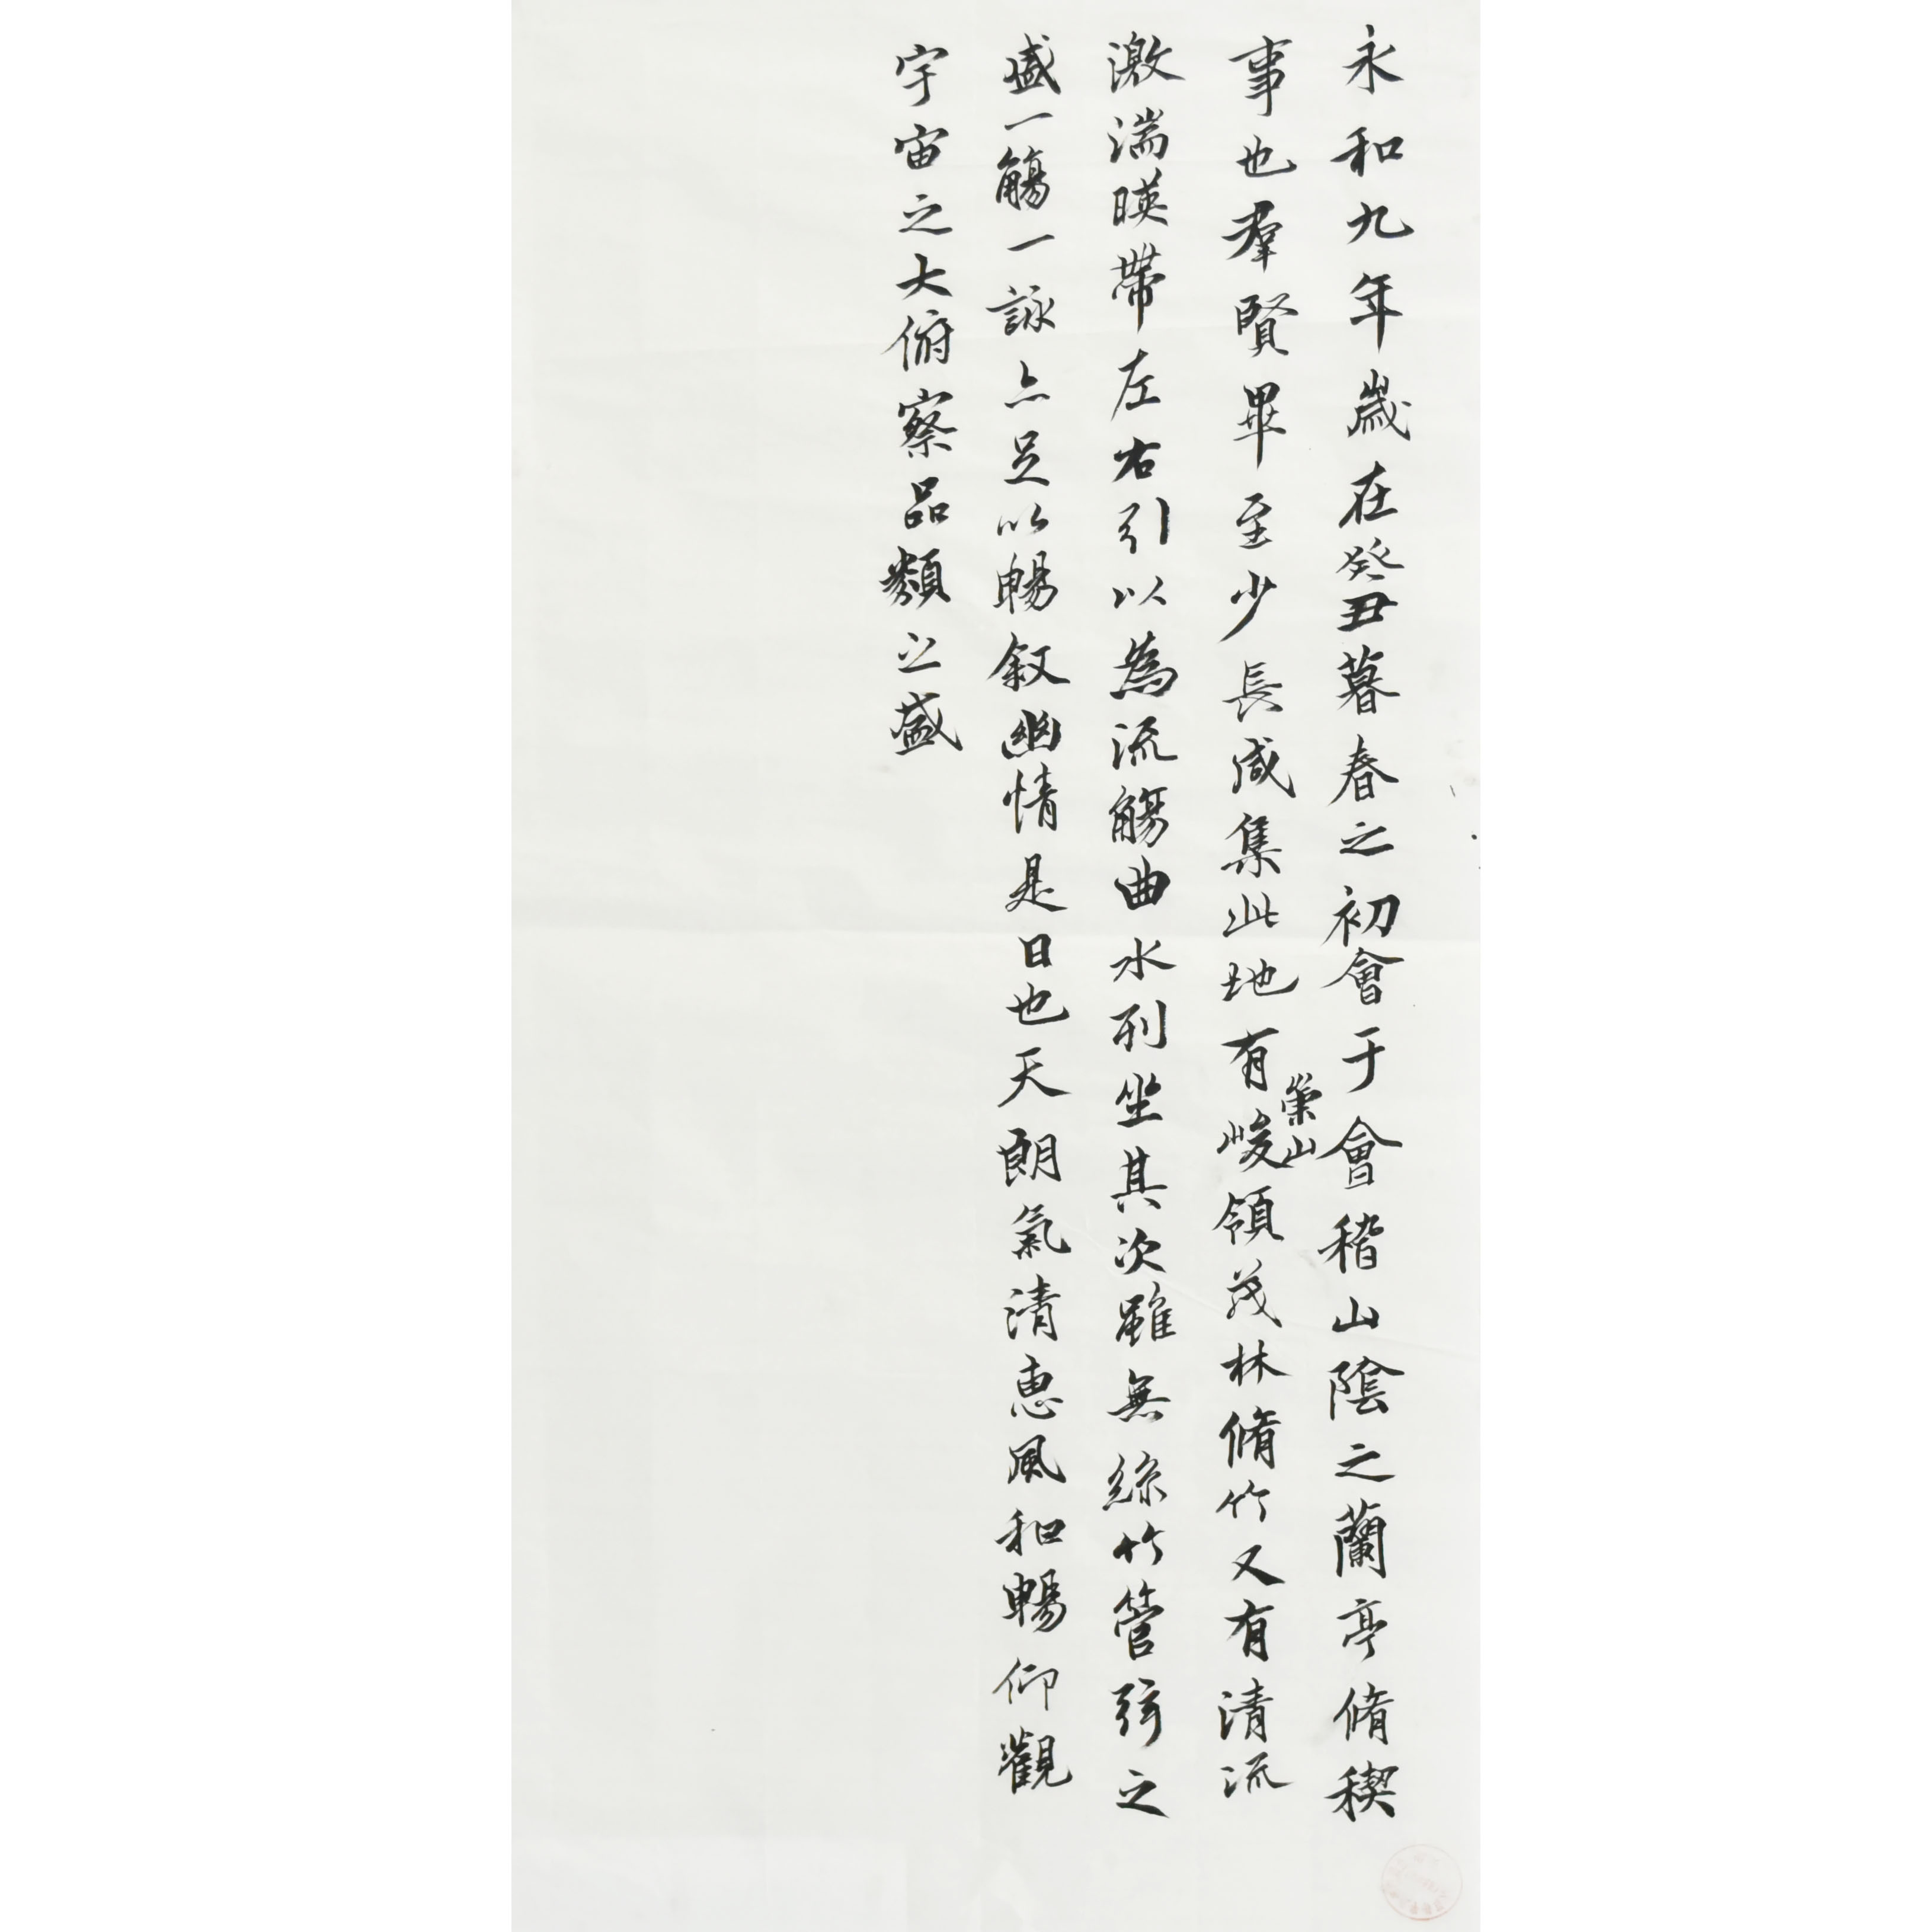 永和九年歲在癸丑暮春之初會于會稽山陰之蘭亭脩稧
事也羣賢畢至少長咸集此地有崇山峻領茂林脩竹又有清流
激湍暎帶左右引以為流觴曲水列坐其次雖無絲竹管弦之
盛一觴一詠亦足以暢敘幽情是日也天朗氣清惠風和暢仰觀
宇宙之大俯察品類之盛